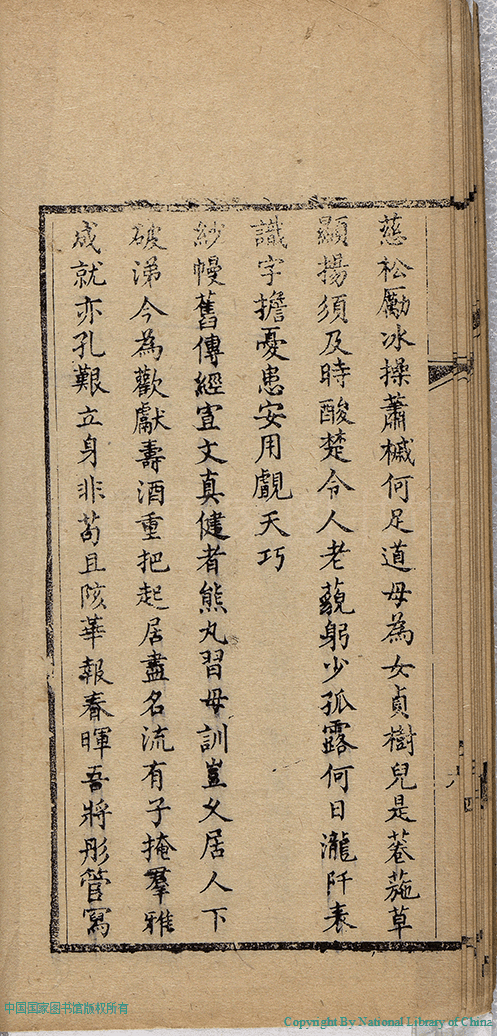 慈松勵冰操蕭槭何足道母為女貞樹兒是菴葹草
顯揚須及時酸楚令人老藐躬少孤露何日瀧阡表
識字擔憂患安用覷天巧
紗幔舊傳經宣文真健者熊丸習母訓豈乂居人下
破涕今為歡獻壽酒重把起居盡名流有子掩羣雅
成就亦孔艱立身非苟且陔華報春暉吾將彤管寫
中国国家图书馆版权所有
Copyright By National Library of China